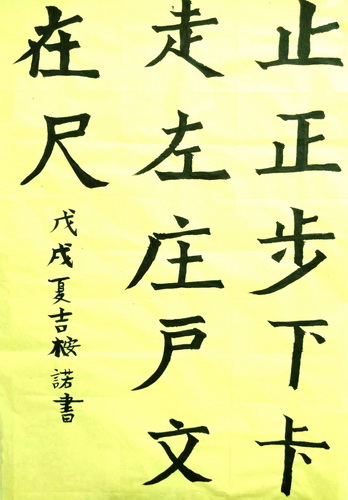 止正步下卡
走左庄戸文
在尺
戊戌夏吉桉諾書